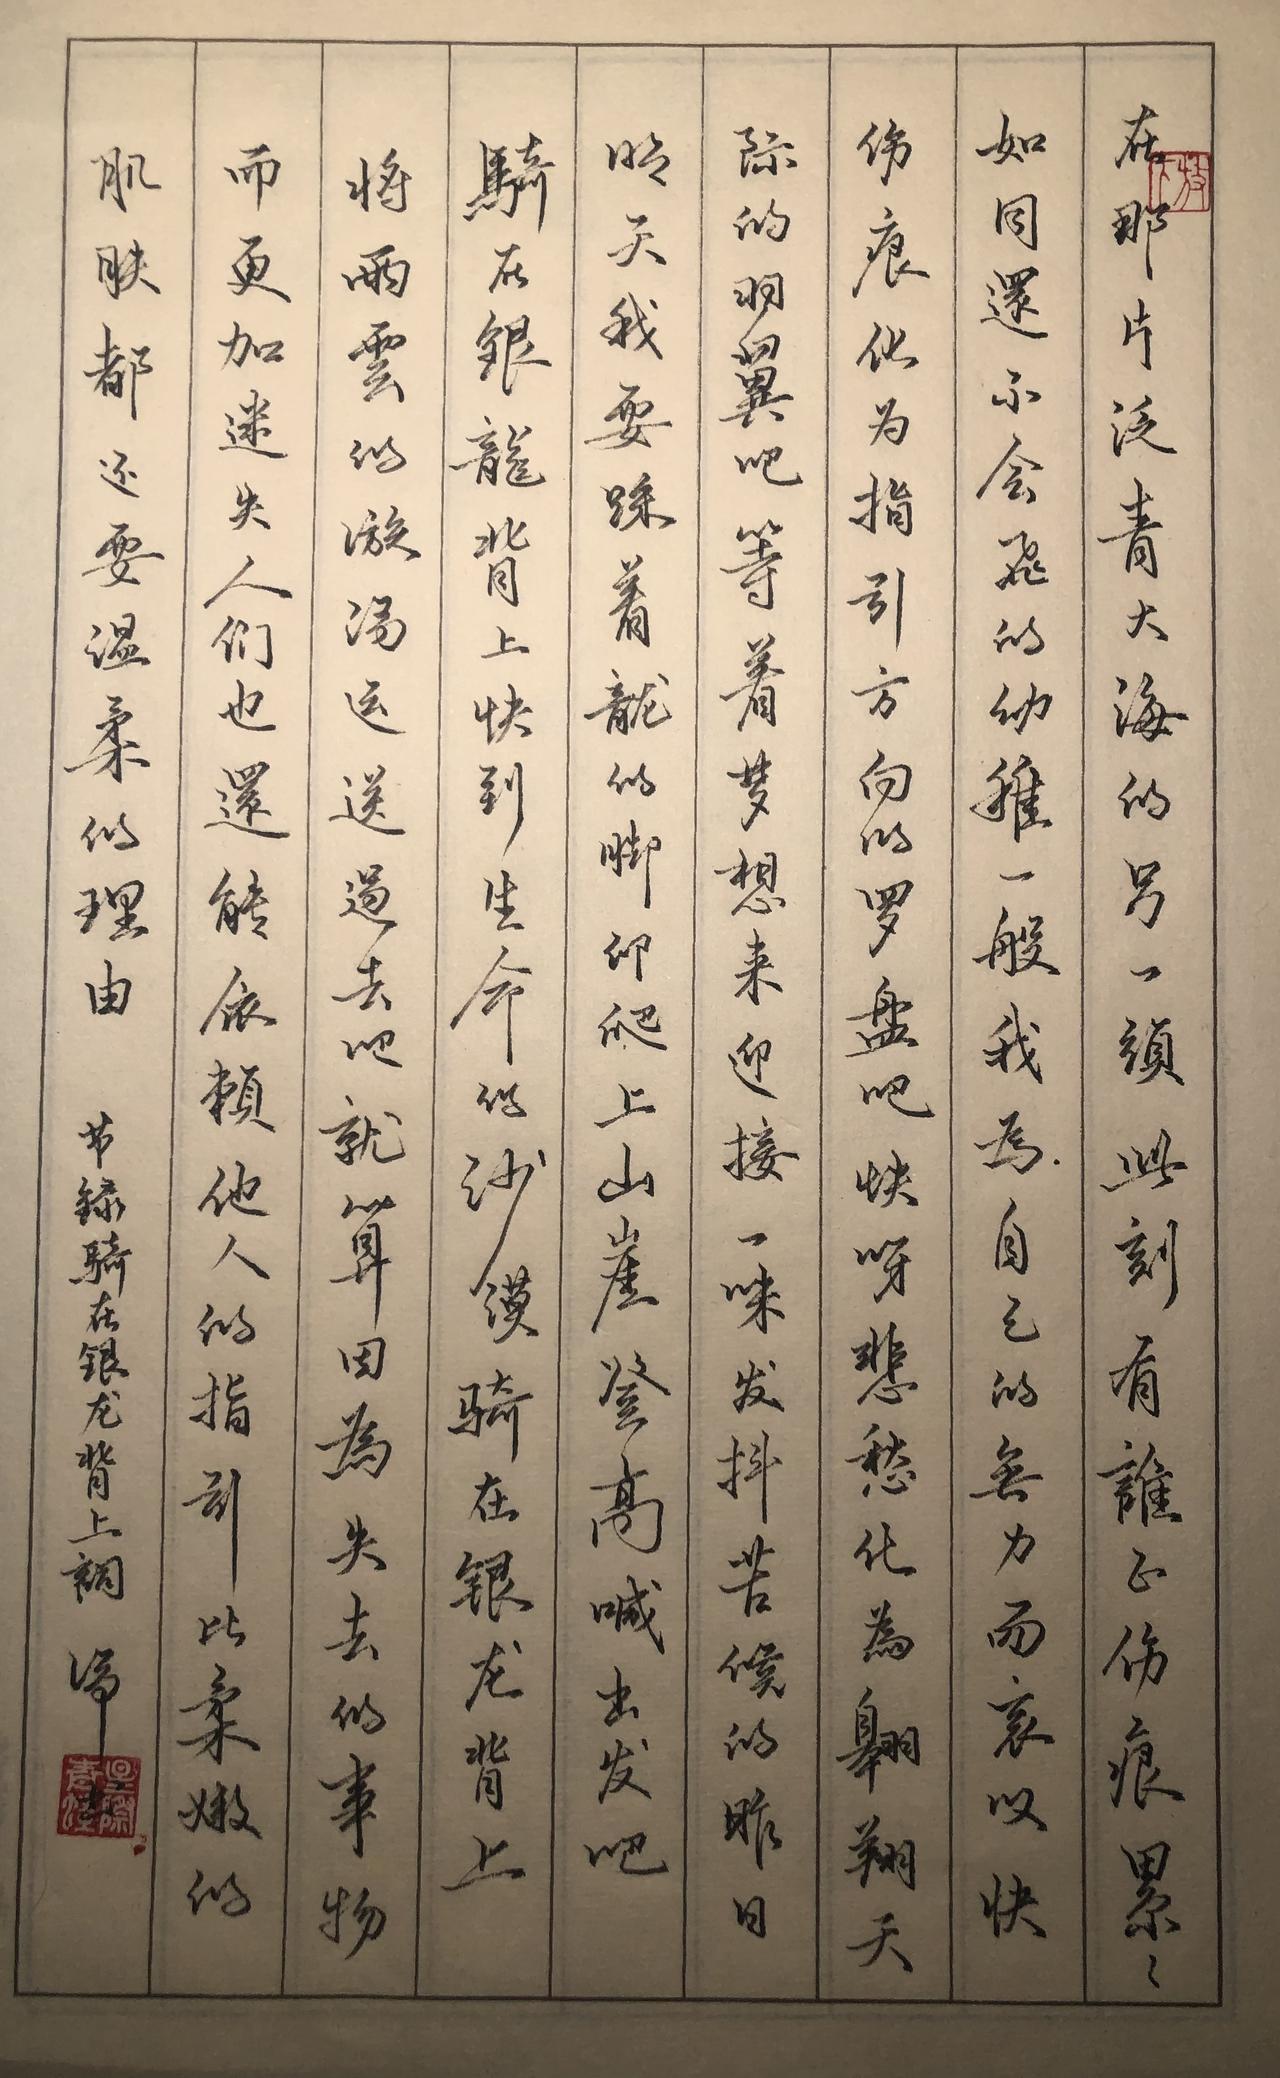 在那片泛青大海的另一頭此刻有誰正伤痕累々
如同還不会飛的幼稚一般我為自己的無力而哀叹快
伤痕化为指引方向的罗盘吧快呀悲愁化為翱翔天
际的羽翼吧等着梦想来迎接一味发抖苦候的昨日
明天我要踩着龍的脚印爬上山崖登高喊出发吧
騎在銀龍背上快到生命的沙漠骑在银龙背上
将雨雲的漩渦运送過去吧就算因為失去的事物
而更加迷失人们也還能依賴他人的指引比柔嫩的
肌肤都还要温柔的理由
节録騎在银龙背上詞